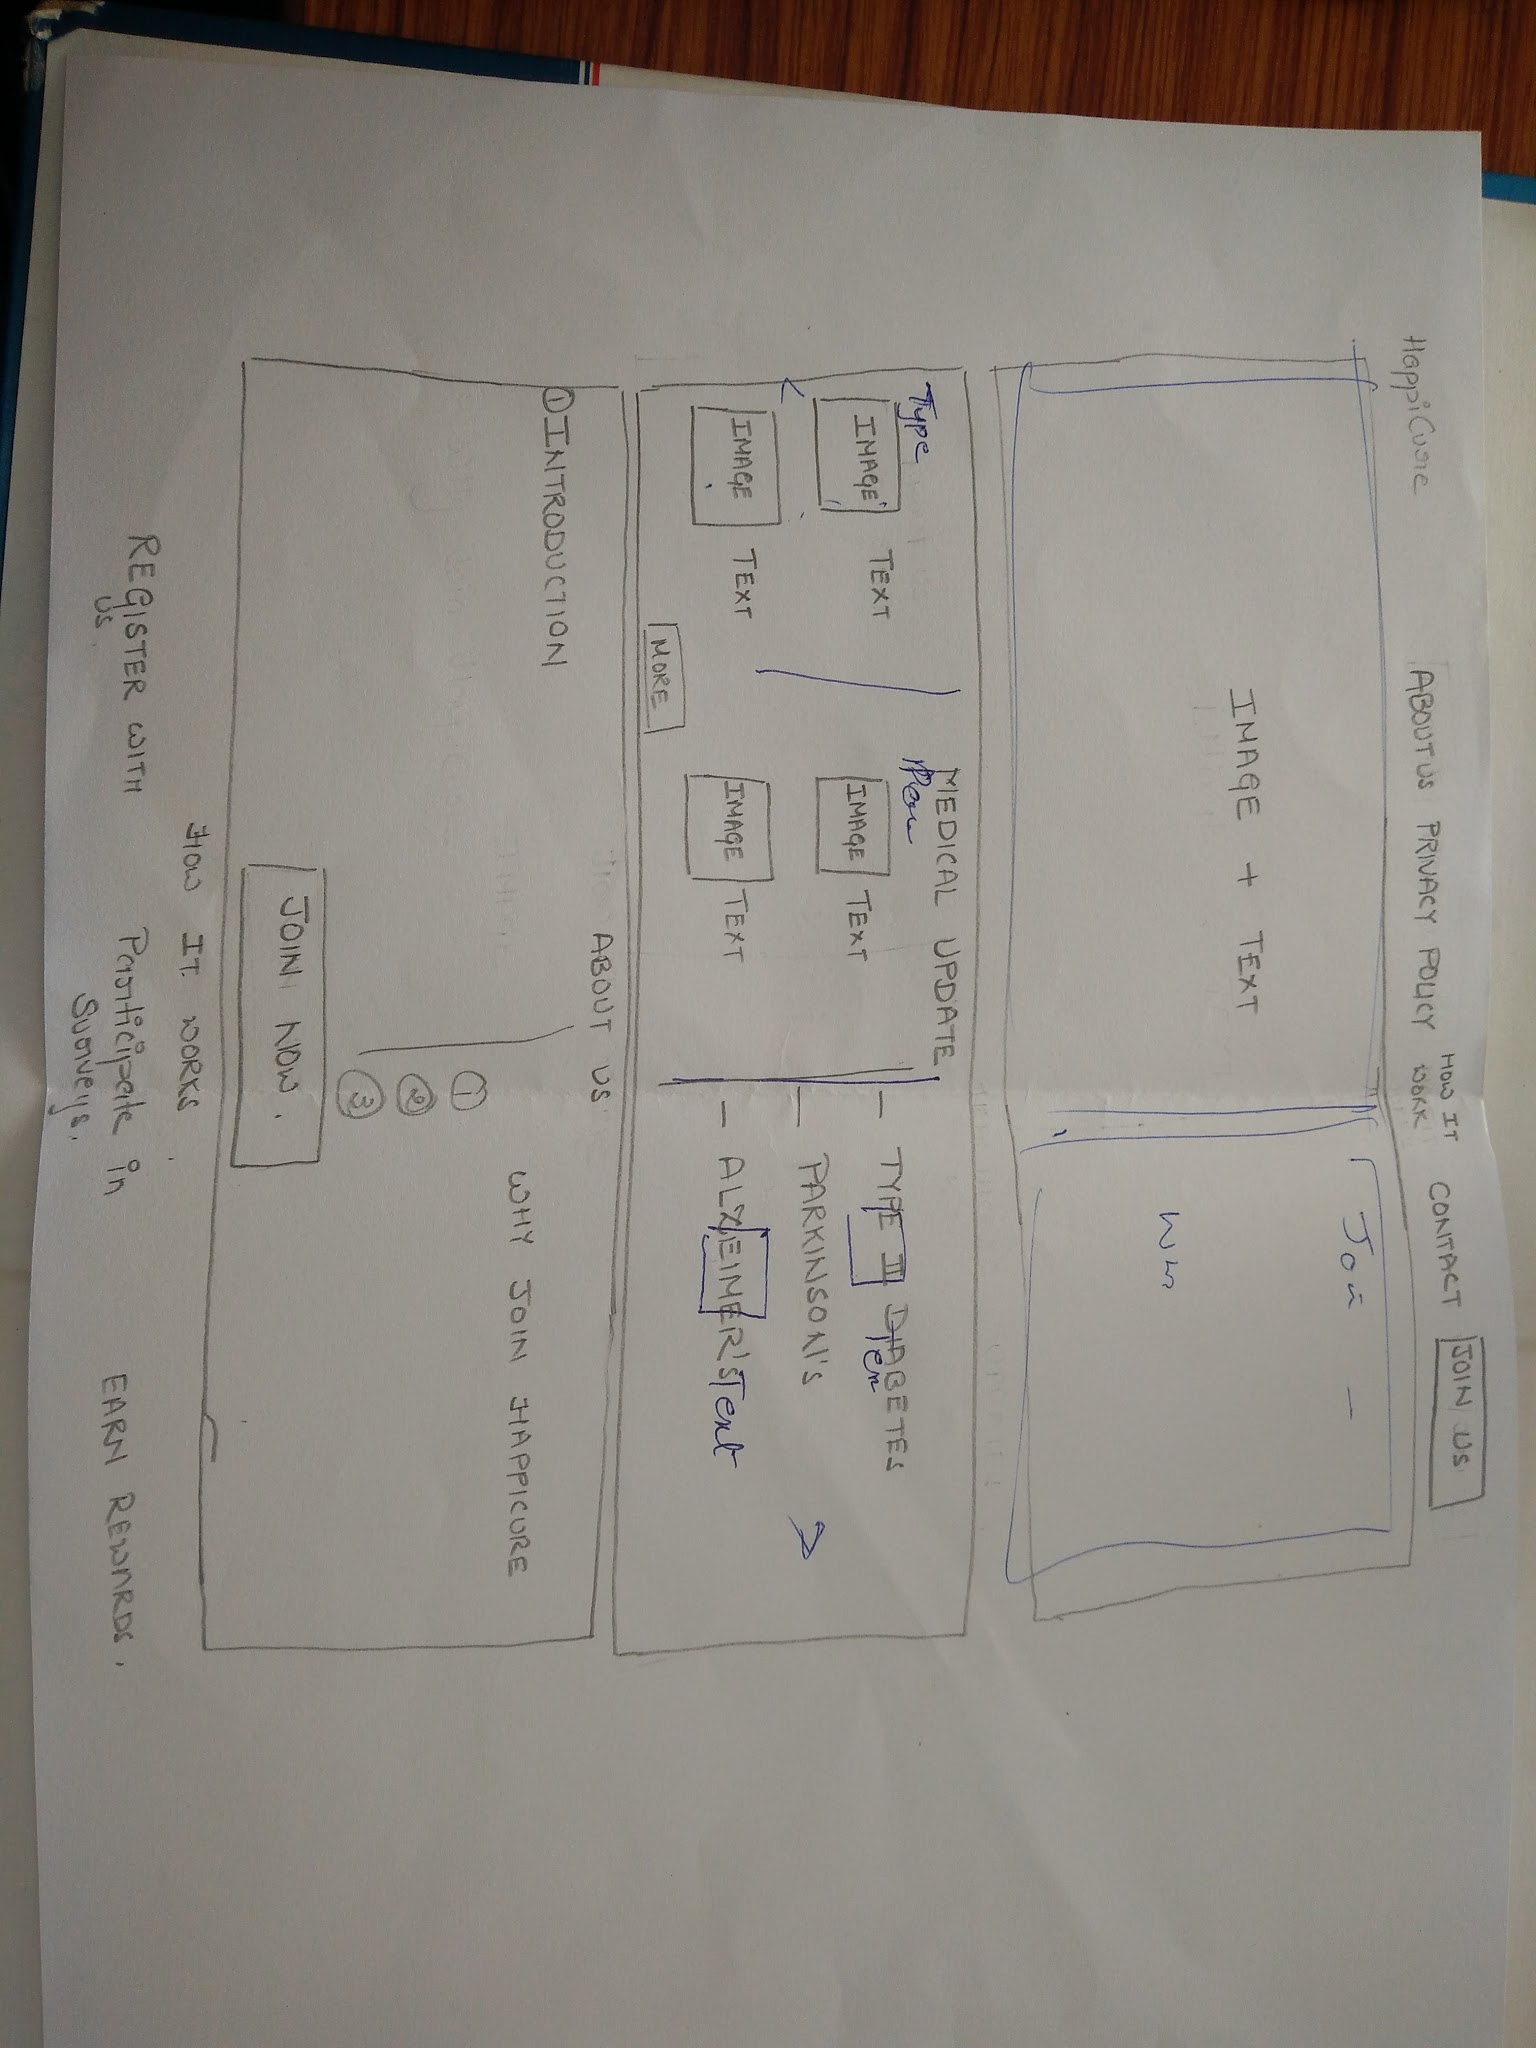 HappiCure
ABOUT US PRIVACY POLICY HOW IT WORK CONTACT JOIN US
Join
IMAGE + TEXT
MEDICAL UPDATE
Type
IMAGE TEXT
IMAGE TEXT
TYPE II DIABETES
Tex
PARKINSON'S
>
<
IMAGE TEXT
IMAGE TEXT
ALZEIMER'S Text
MORE
ABOUT US
① INTRODUCTION
WHY JOIN HAPPICURE
①
②
③
JOIN NOW.
HOW IT WORKS
REGISTER WITH US.
Participate in Surveys.
EARN REWARDS.